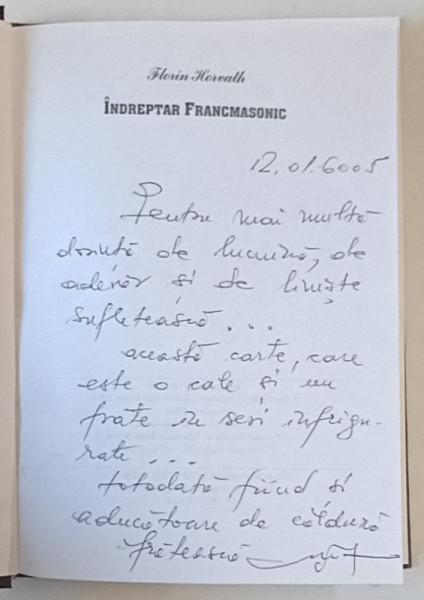 Florin Horvath
ÎNDREPTAR FRANCMASONIC
12.01.6005
Pentru mai multă
dorință de lumină, de
adevăr și de liniște
sufletească...
această carte, care
este o cale și un
frate în seri înfrigu-
rate...
totodată fiind și
aducătoare de căldură
frățească